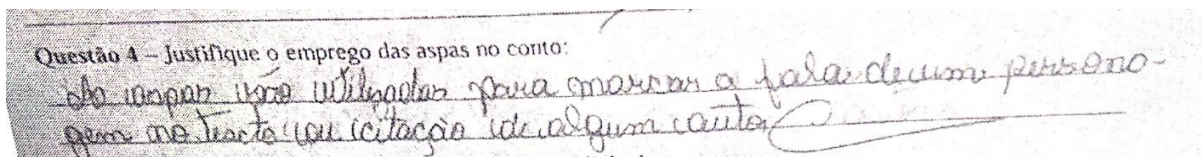 Questão 4 – Justifique o emprego das aspas no conto:
As aspas são utilizadas para marcar a fala de um persona-
gem no texto ou citação de algum autor